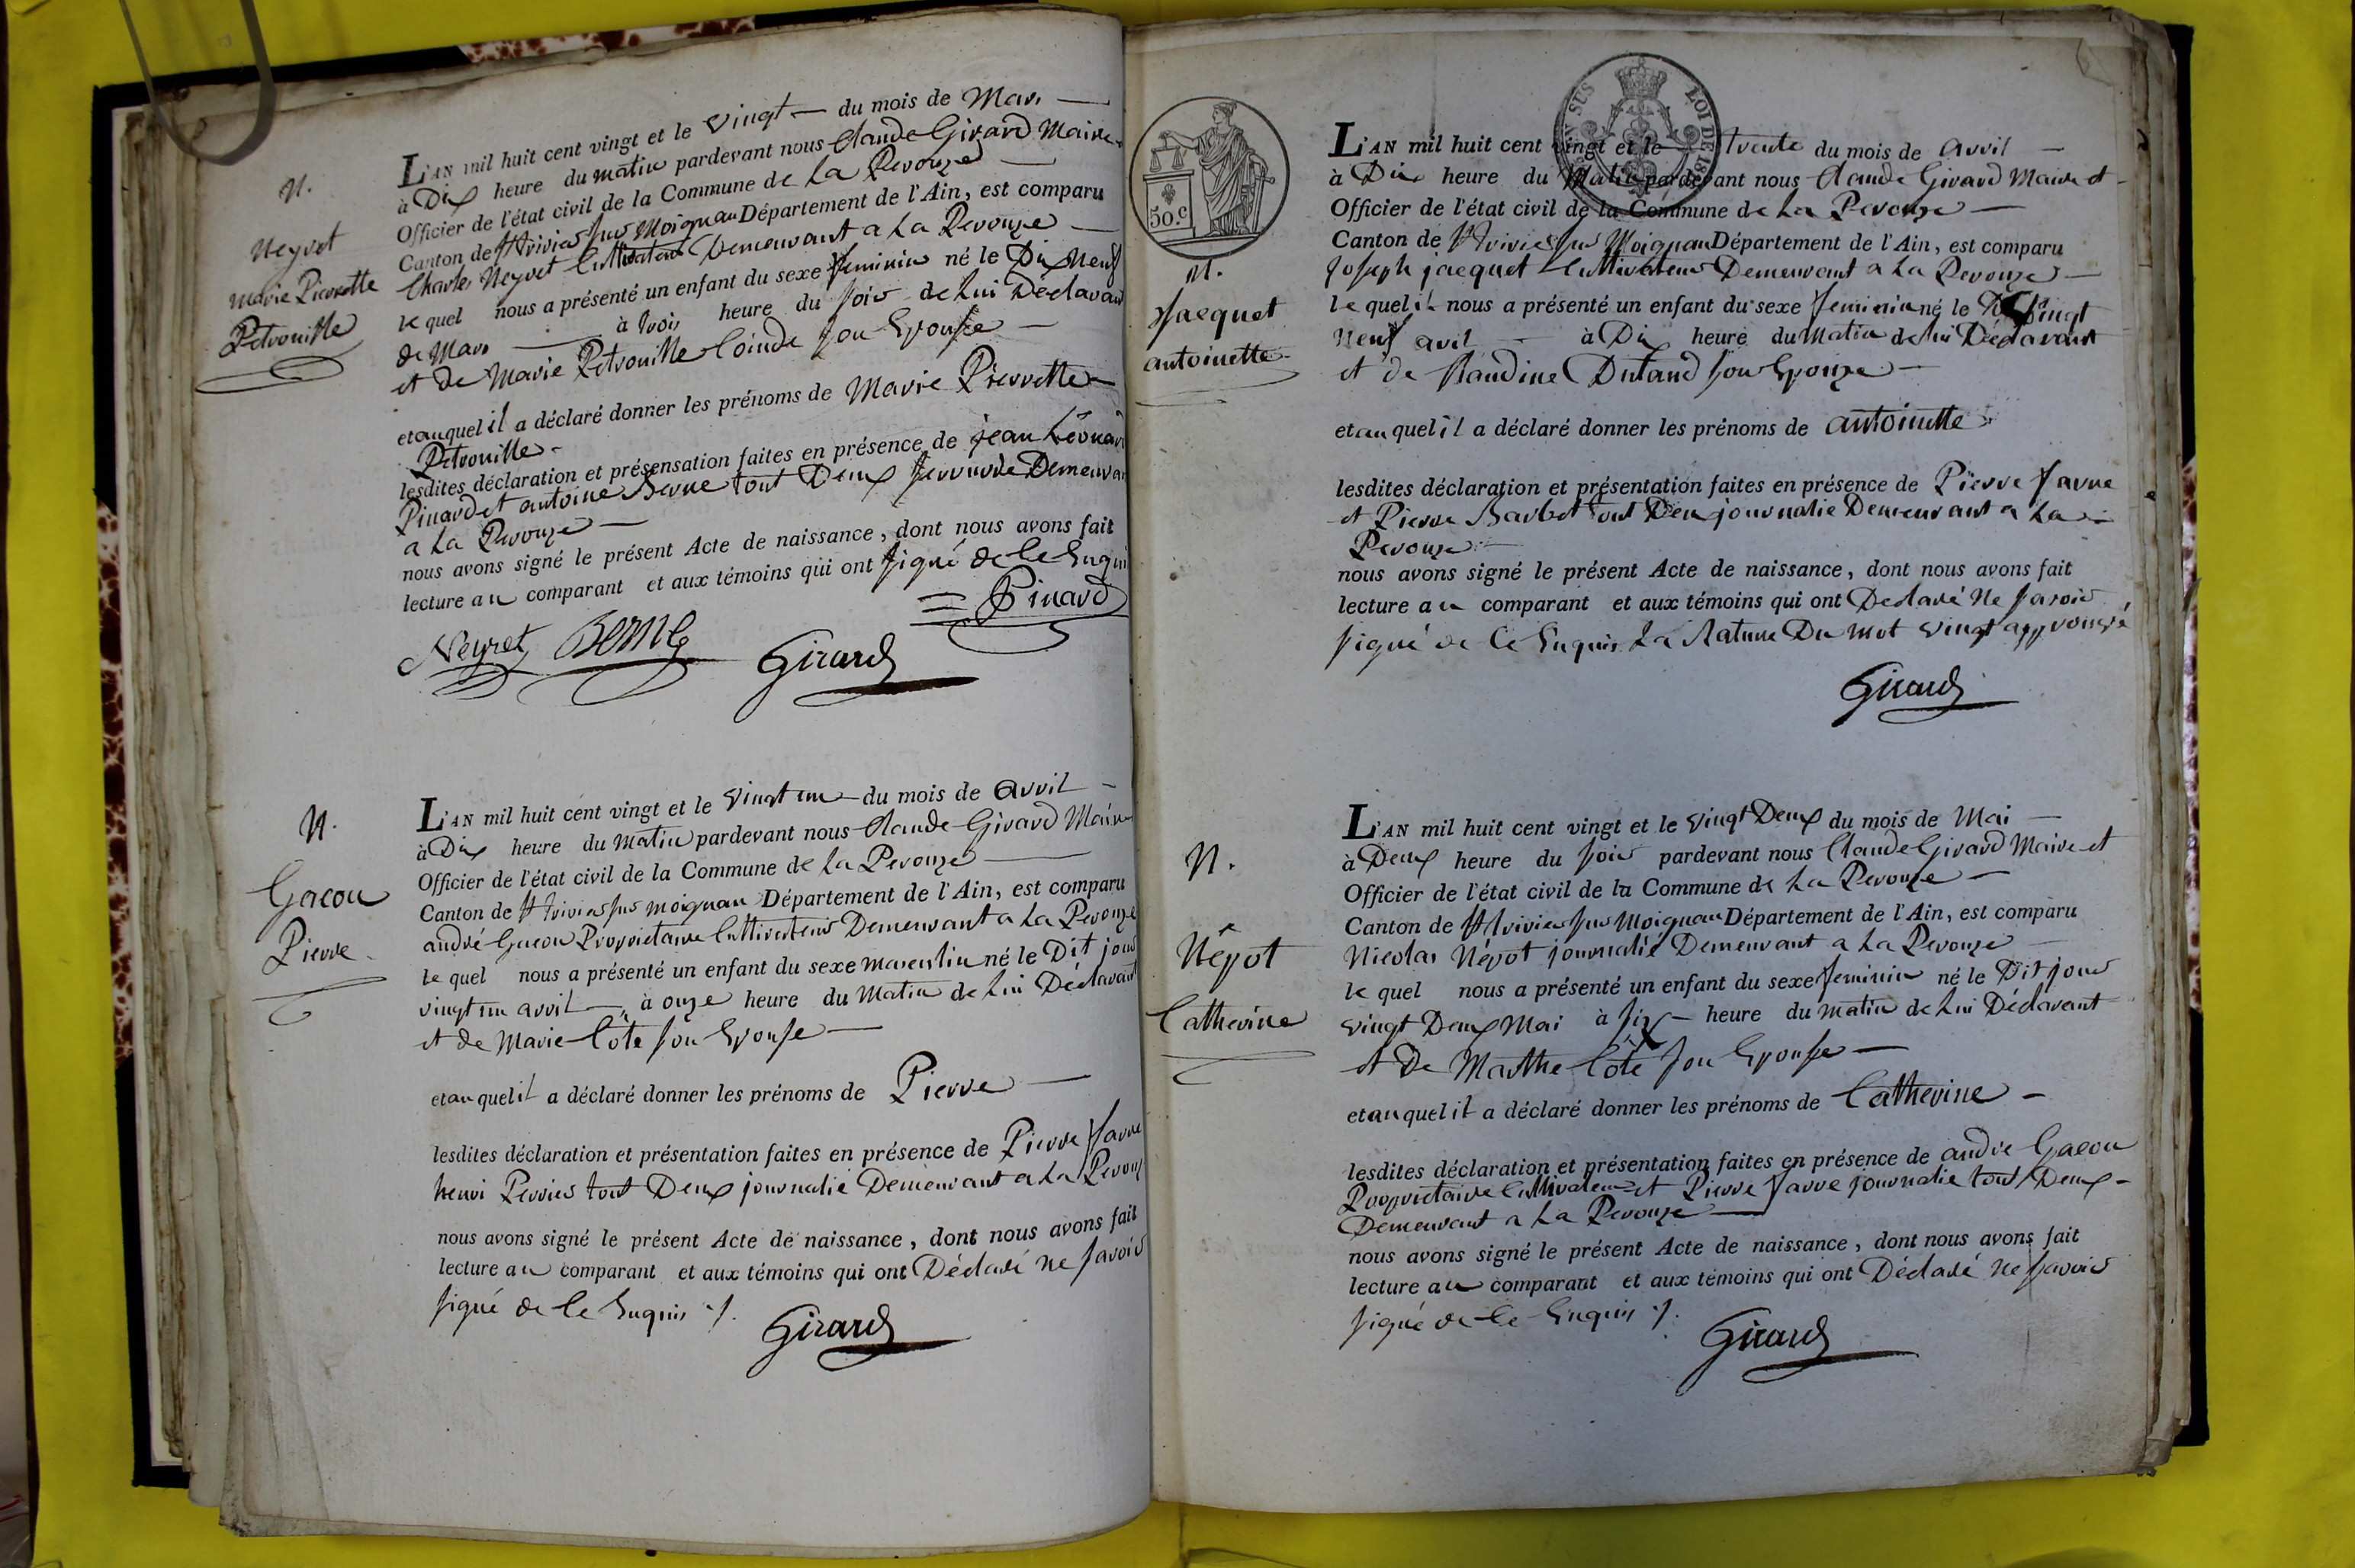 N.
Neyret
marie Pierrette
Petronille
L'AN mil huit cent vingt et le vingt du mois de Mars
à Dix heure du matin pardevant nous Claude Girard Maire
Officier de l'état civil de la Commune de La Perouze
Canton de St Trivier sur Moignan Département de l'Ain, est comparu
Charles Neyret Cultivateur Demeurant a La Perouze
lequel nous a présenté un enfant du sexe feminin né le Dix Neuf
de Mars à trois heure du soir de lui Déclarant
et de Marie Petronille Cointe son Epouse
et auquel il a déclaré donner les prénoms de Marie Pierrette
Petronille
lesdites déclaration et présensation faites en présence de jean Léonard
Pinard et antoine Berne tout Deux Demeurant
a La Perouze
nous avons signé le présent Acte de naissance, dont nous avons fait
lecture au comparant et aux témoins qui ont signé de Ce Enquis
Pinard
Neyret Berne Girard
N.
Gacon
Pierre
L'AN mil huit cent vingt et le vingt un du mois de avril
à Dix heure du matin pardevant nous Claude Girard Maire
Officier de l'état civil de la Commune de La Perouze
Canton de St Trivier sur moignan Département de l'Ain, est comparu
andré Gacon Proprietaire Cultivateur Demeurant a La Perouze
lequel nous a présenté un enfant du sexe masculin né le Dit jour
vingt un avril à onze heure du Matin de lui Déclarant
et de Marie Côte son Epouse
et auquel il a déclaré donner les prénoms de Pierre
lesdites déclaration et présentation faites en présence de Pierre Favre
henri Perrier tout Deux journalié Demeurant a La Perouze
nous avons signé le présent Acte de naissance, dont nous avons fait
lecture au comparant et aux témoins qui ont Déclaré ne savoir
signé de Ce Enquis ./.
Girard
50.c
SUS LOI DE 18
N.
Jacquet
antoinette
L'AN mil huit cent vingt et le trente du mois de avril
à Dix heure du Matin pardevant nous Claude Girard Maire et
Officier de l'état civil de la Commune de La Perouze
Canton de St Trivier sur Moignan Département de l'Ain, est comparu
Joseph jacquet Cultivateur Demeurant a La Perouze
lequel il nous a présenté un enfant du sexe feminin né le vingt
Neuf avril à Dix heure du Matin de lui Déclarant
et de Claudine Dutand son Epouze
et auquel il a déclaré donner les prénoms de antoinette
lesdites déclaration et présentation faites en présence de Pierre Favre
et Pierre Barbet tout Deu journalié Demeurant a La
Perouze
nous avons signé le présent Acte de naissance, dont nous avons fait
lecture au comparant et aux témoins qui ont Declaré Ne savoir
signé de Ce Enquis La Rature Du mot vingt approuvé
Girard
N.
Népot
Catherine
L'AN mil huit cent vingt et le vingt Deux du mois de Mai
à Deux heure du soir pardevant nous Claude Girard Maire et
Officier de l'état civil de la Commune de La Perouze
Canton de St Trivier sur Moignan Département de l'Ain, est comparu
Nicolas Népot journalié Demeurant a La Perouze
lequel nous a présenté un enfant du sexe feminin né le Dit jour
vingt Deux Mai à six heure du matin de lui Déclarant
et De Marthe Côte son Epouse
et auquel il a déclaré donner les prénoms de Catherine
lesdites déclaration et présentation faites en présence de andré Gacon
Proprietaire Cultivateur et Pierre Favre journalié tout Deux
Demeurant a La Perouze
nous avons signé le présent Acte de naissance, dont nous avons fait
lecture au comparant et aux témoins qui ont Déclaré ne savoir
signé de Ce Enquis ./.
Girard